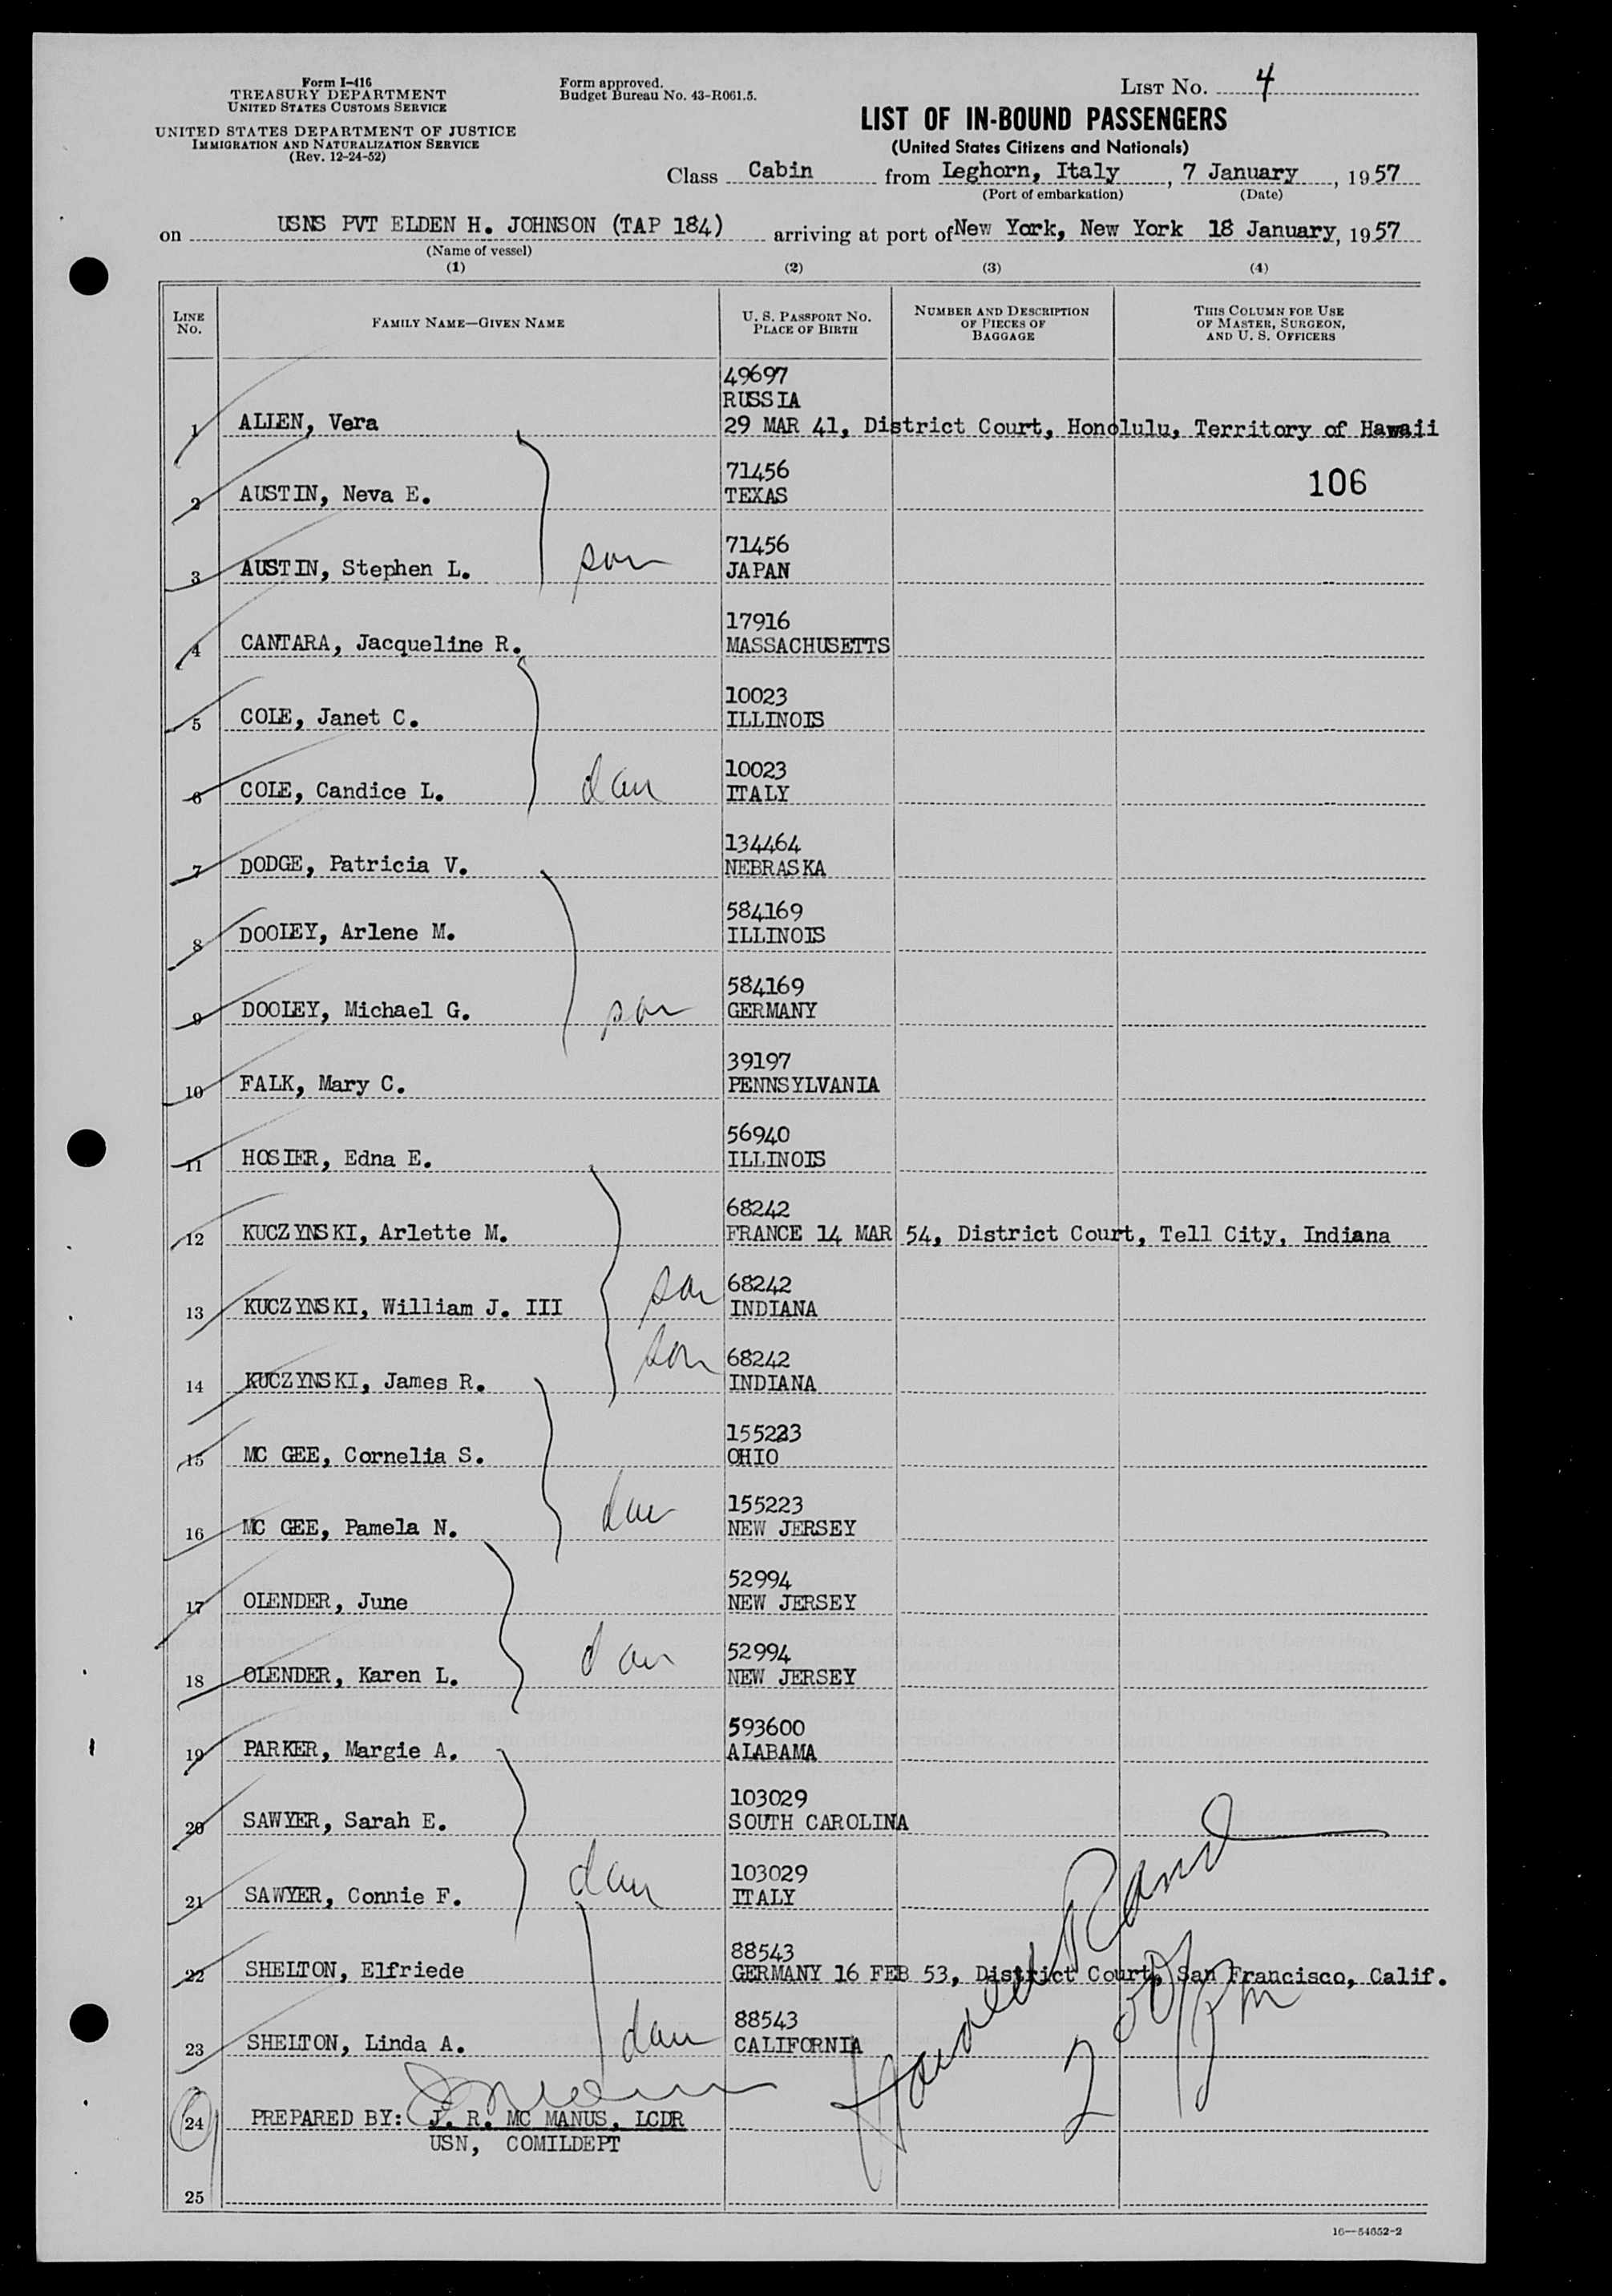 Form I-416
TREASURY DEPARTMENT
UNITED STATES CUSTOMS SERVICE
UNITED STATES DEPARTMENT OF JUSTICE
IMMIGRATION AND NATURALIZATION SERVICE
(Rev. 12-24-52)
Form approved.
Budget Bureau No. 43-R061.5.
LIST No. 4
LIST OF IN-BOUND PASSENGERS
(United States Citizens and Nationals)
Class Cabin from Leghorn, Italy, 7 January, 1957
(Port of embarkation) (Date)
on USNS PVT ELDEN H. JOHNSON (TAP 184) arriving at port of New York, New York 18 January, 1957
(Name of vessel)
(1) (2) (3) (4)
LINE No. FAMILY NAME—GIVEN NAME U. S. PASSPORT NO. PLACE OF BIRTH NUMBER AND DESCRIPTION OF PIECES OF BAGGAGE THIS COLUMN FOR USE OF MASTER, SURGEON, AND U. S. OFFICERS
49697
RUSSIA
1 ALLEN, Vera 29 MAR 41, District Court, Honolulu, Territory of Hawaii
71456 106
2 AUSTIN, Neva E. TEXAS
71456
3 AUSTIN, Stephen L. son JAPAN
17916
4 CANTARA, Jacqueline R. MASSACHUSETTS
10023
5 COLE, Janet C. ILLINOIS
10023
6 COLE, Candice L. dau ITALY
134464
7 DODGE, Patricia V. NEBRASKA
584169
8 DOOLEY, Arlene M. ILLINOIS
584169
9 DOOLEY, Michael G. son GERMANY
39197
10 FALK, Mary C. PENNSYLVANIA
56940
11 HOSIER, Edna E. ILLINOIS
68242
12 KUCZYNSKI, Arlette M. FRANCE 14 MAR 54, District Court, Tell City, Indiana
68242
13 KUCZYNSKI, William J. III son INDIANA
68242
14 KUCZYNSKI, James R. son INDIANA
155223
15 MC GEE, Cornelia S. OHIO
155223
16 MC GEE, Pamela N. dau NEW JERSEY
52994
17 OLENDER, June NEW JERSEY
52994
18 OLENDER, Karen L. dau NEW JERSEY
593600
19 PARKER, Margie A. ALABAMA
103029
20 SAWYER, Sarah E. SOUTH CAROLINA
103029
21 SAWYER, Connie F. dau ITALY
88543
22 SHELTON, Elfriede GERMANY 16 FEB 53, District Court, San Francisco, Calif.
88543
23 SHELTON, Linda A. dau CALIFORNIA
24 PREPARED BY: J. R. MC MANUS, LCDR
USN, COMILDEPT
25
16—54652-2